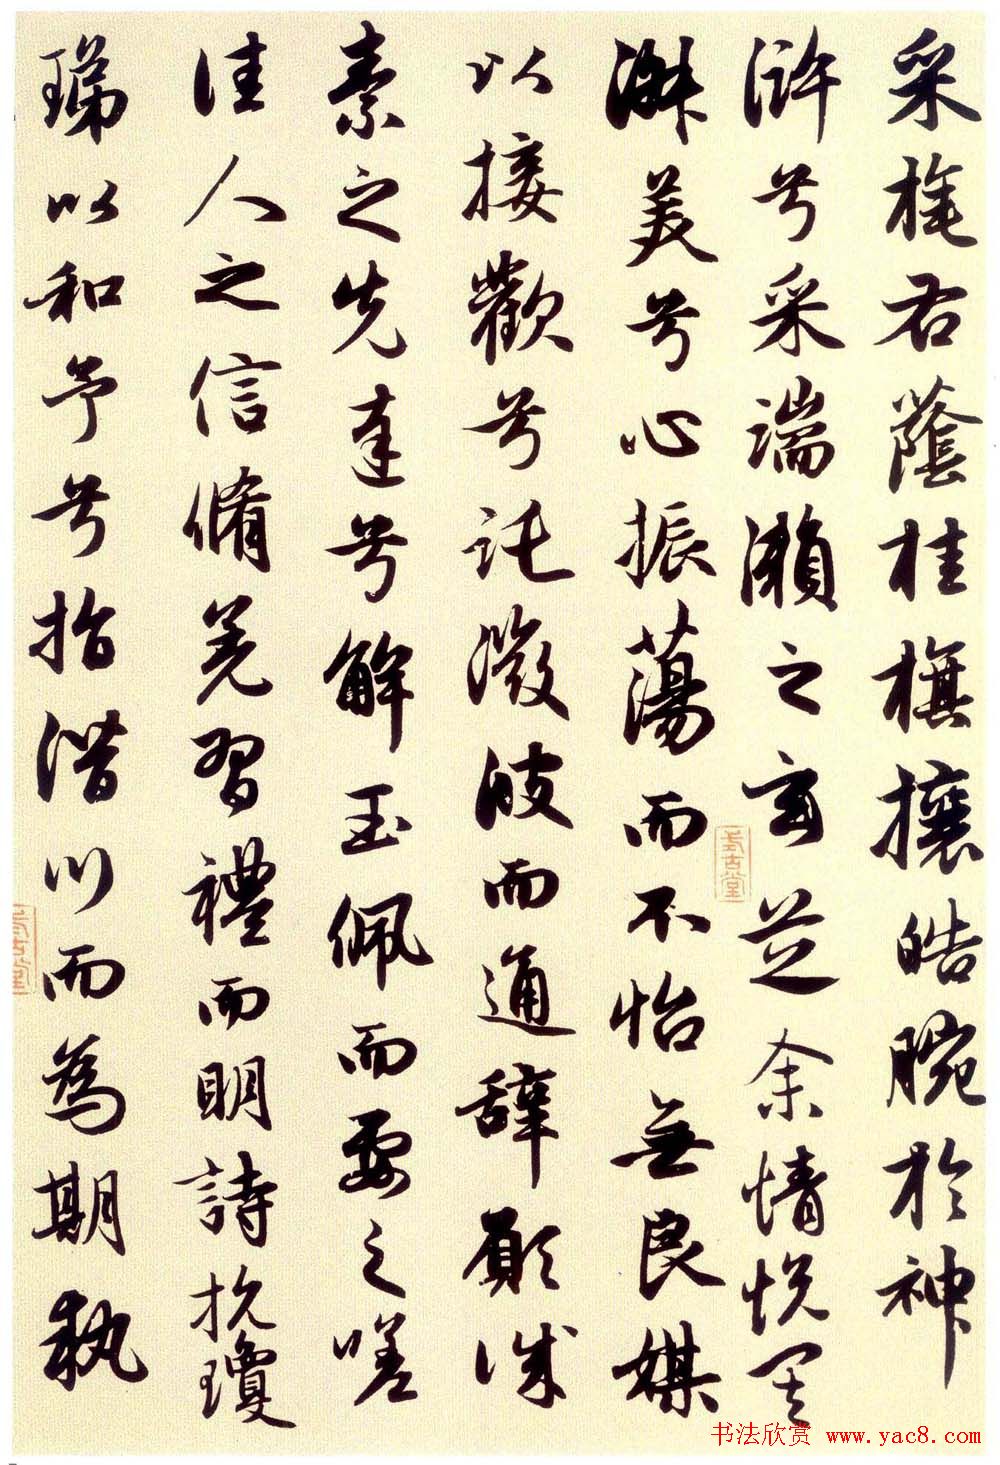 采旄右蔭桂旗攘皓腕於神
滸兮采湍瀨之玄芝余情悅其
淑美兮心振蕩而不怡無良媒
以接歡兮託微波而通辭願誠
素之先達兮解玉佩而要之嗟
佳人之信脩羌習禮而明詩抗瓊
珶以和予兮指潛川而為期執
式古堂
式古堂
书法欣赏 www.yac8.com